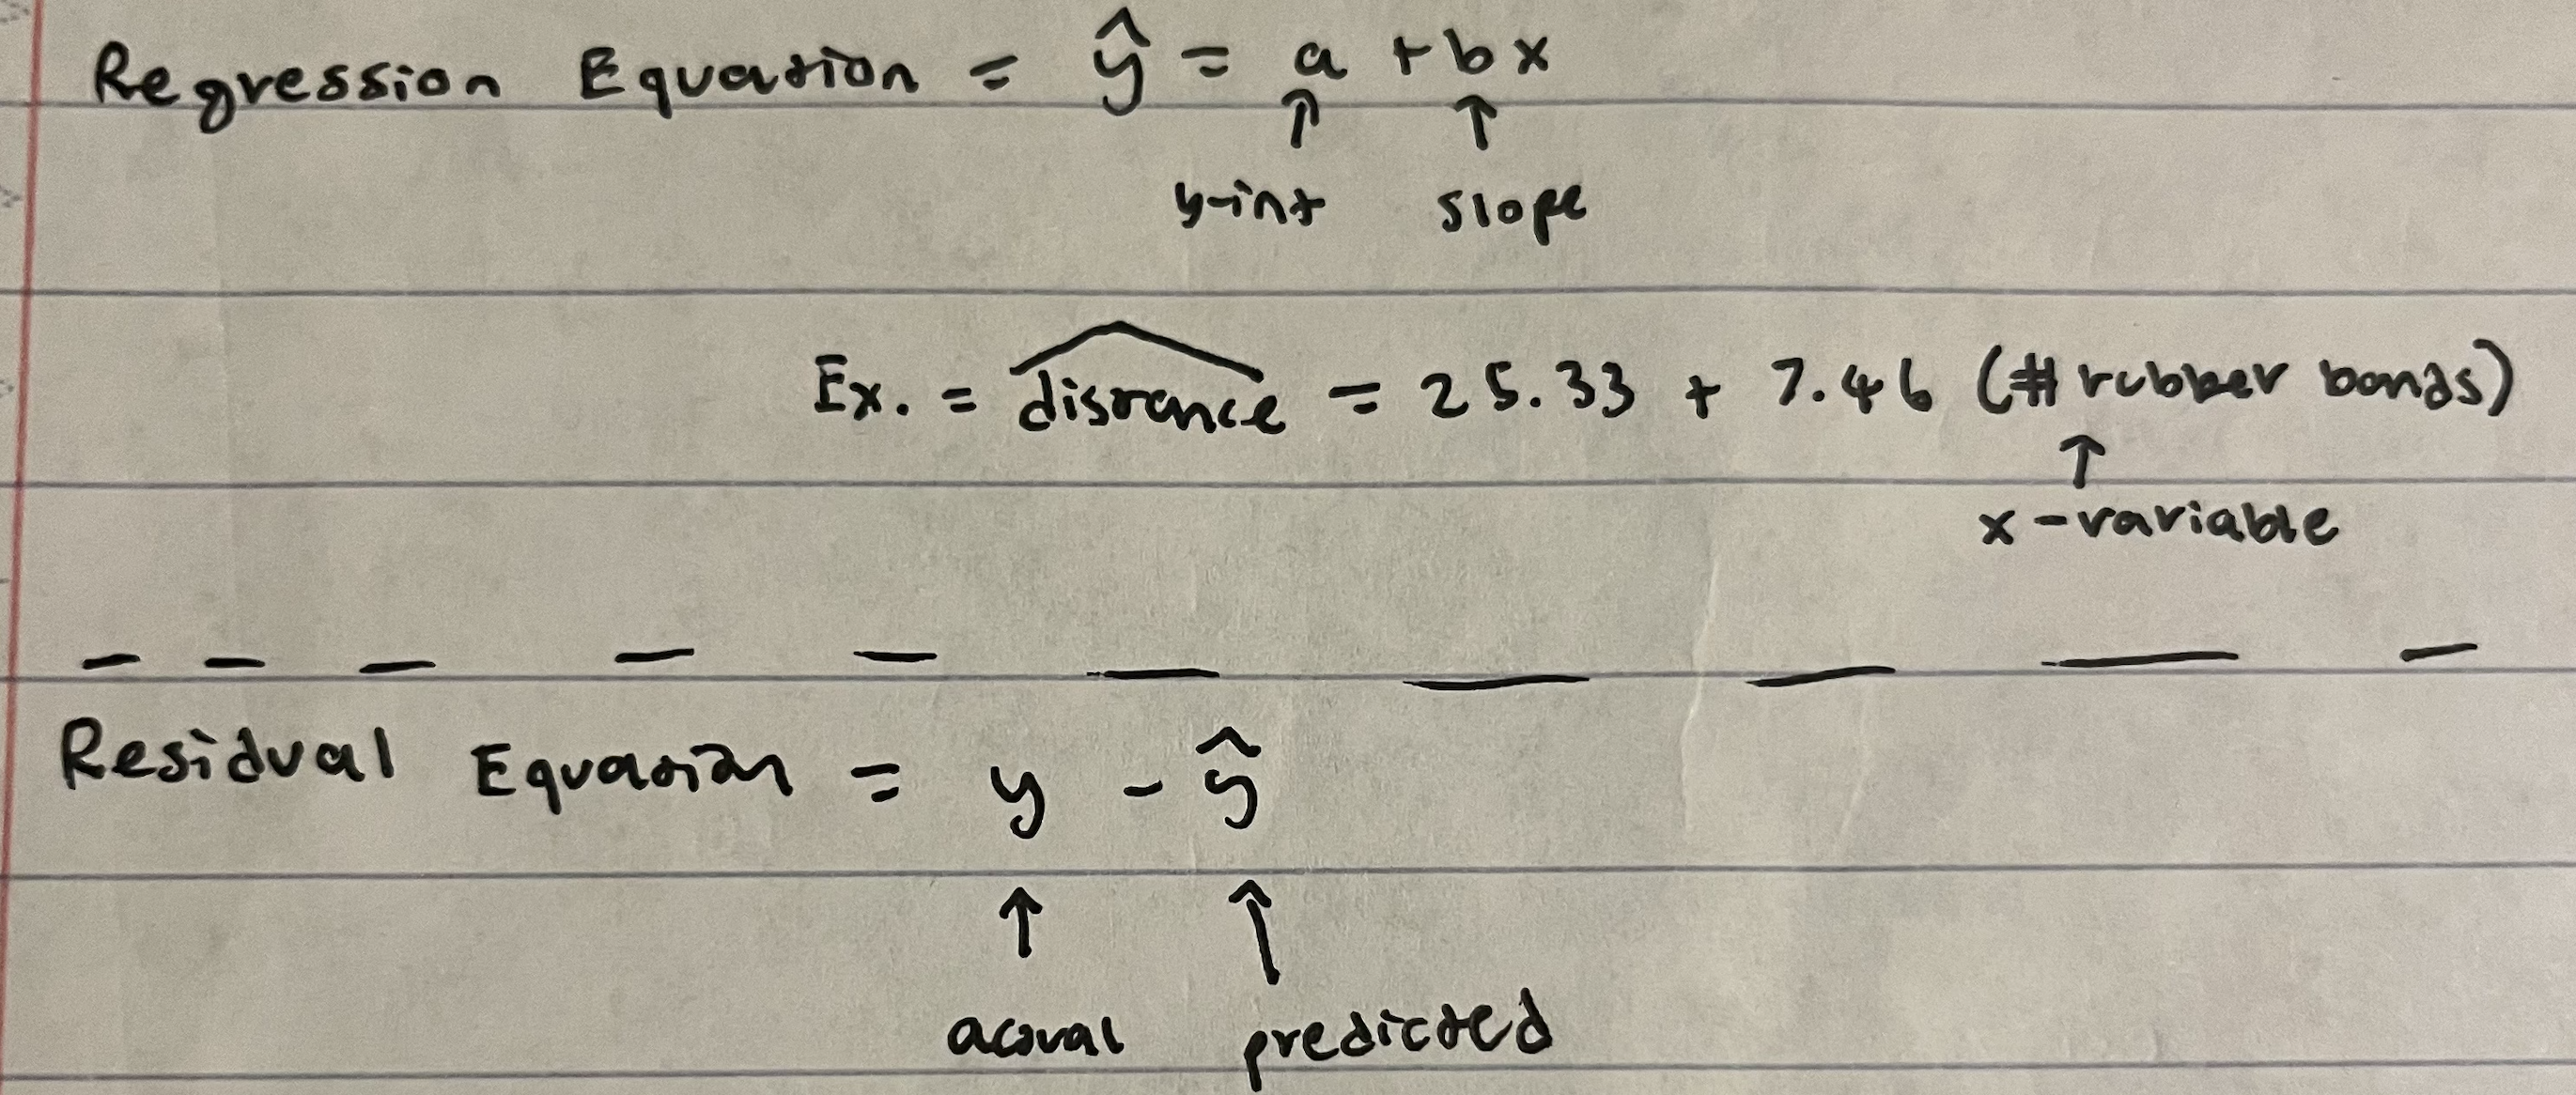 Regression Equation = ŷ = a + bx
↑ ↑
y-int slope
Ex. = distance^ = 25.33 + 7.46 (# rubber bands)
↑
x-variable
— — — — — — — — — —
Residual Equation = y - ŷ
↑ ↑
actual predicted